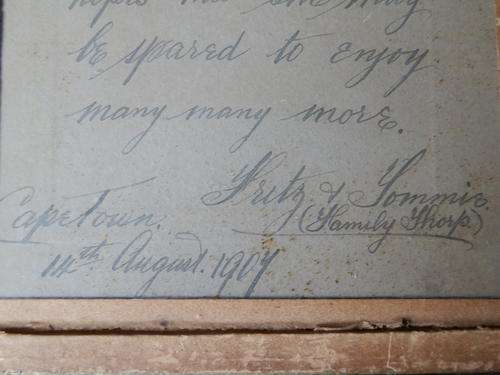 hopes that she may
be spared to enjoy
many many more.
Fritz & Tommie
(Family Thorp.)
CapeTown.
14th August. 1907